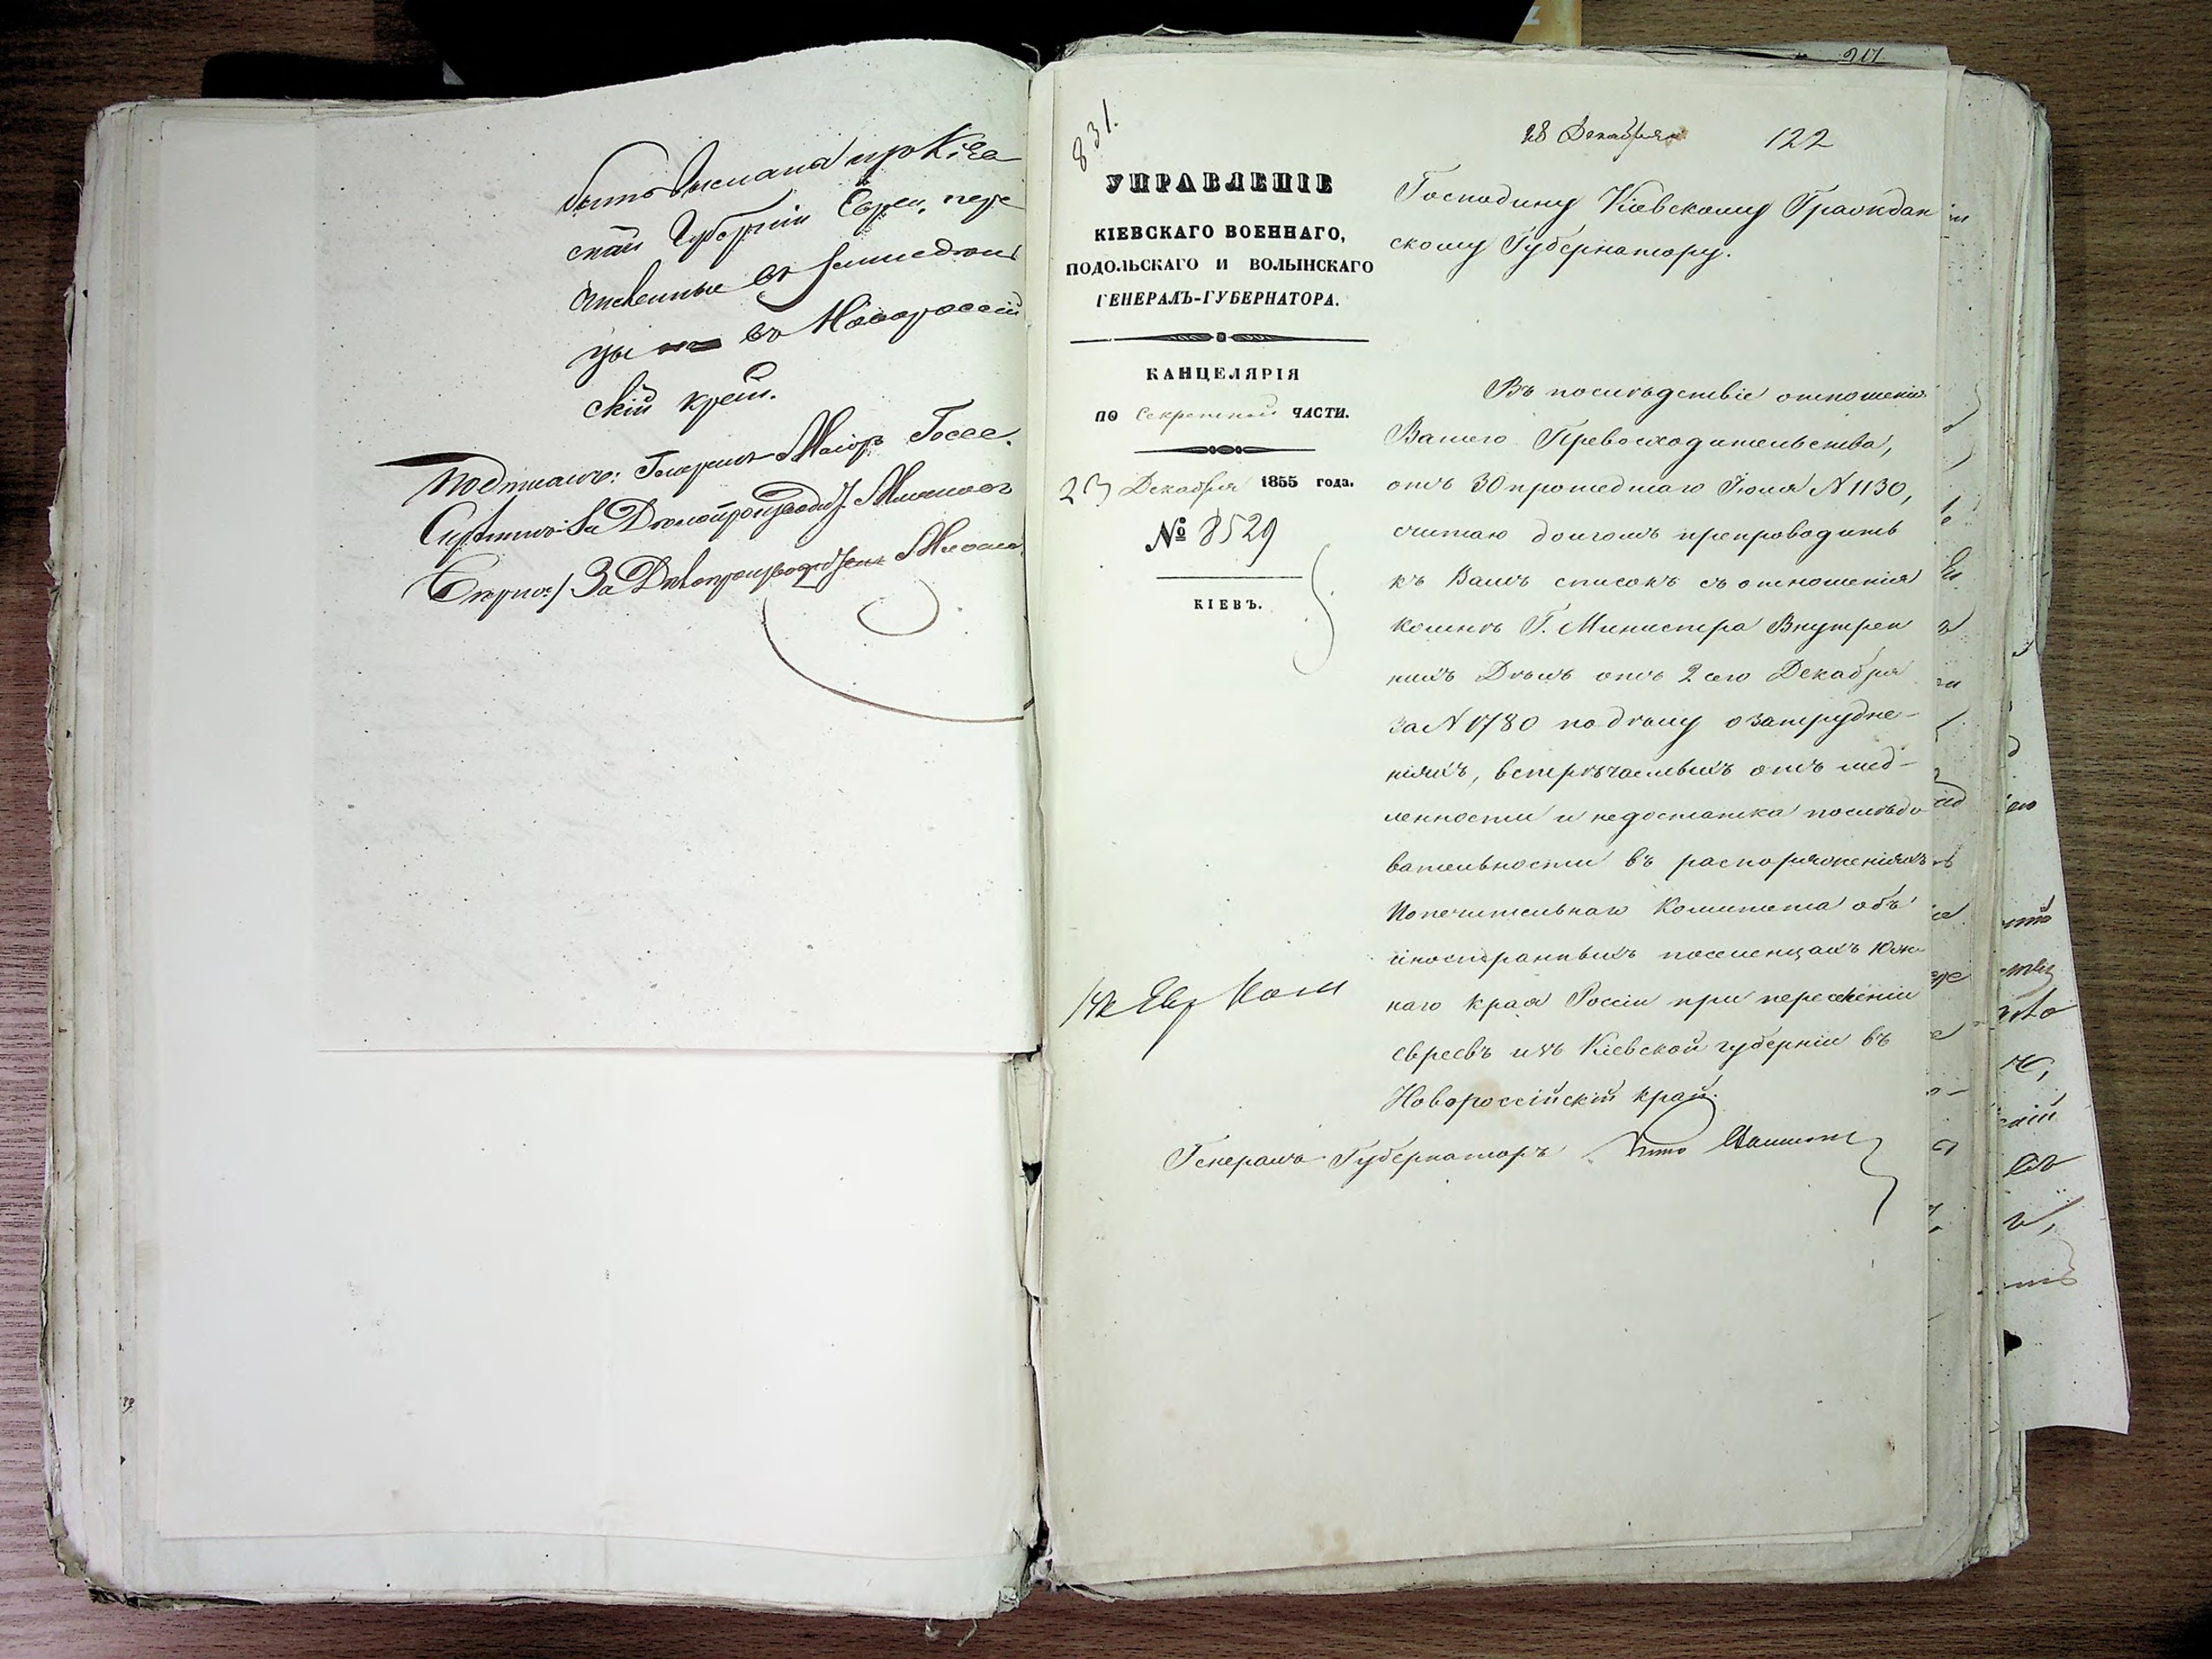 быть высланы изъ Кіев
ской Губерніи Евреи, пере
численные въ земледѣль
цы въ Новороссій
скій край.
Подписалъ: Генералъ-Маіоръ Гессе.
Скрѣпилъ: За Дѣлопроизводит.
Вѣрно: За Дѣлопроизводителя
217
831.
28 Декабря
122
УПРАВЛЕНІЕ
КІЕВСКАГО ВОЕННАГО,
ПОДОЛЬСКАГО И ВОЛЫНСКАГО
ГЕНЕРАЛЪ-ГУБЕРНАТОРА.
КАНЦЕЛЯРІЯ
ПО Секретной ЧАСТИ.
23 Декабря 1855 года.
№ 8529
КІЕВЪ.
Господину Кіевскому Граждан
скому Губернатору.
Въ послѣдствіе отношенія
Вашего Превосходительства,
отъ 30 прошедшаго Іюля № 1130,
считаю долгомъ препроводить
къ Вамъ списокъ съ отношенія
ко мнѣ Г. Министра Внутрен
нихъ Дѣлъ отъ 2 сего Декабря
за № 1780 по дѣлу о затрудне-
ніяхъ, встрѣчаемыхъ отъ мед-
ленности и недостатка послѣдо
вательности въ распоряженіяхъ
Попечительнаго Комитета объ
иностранныхъ поселенцахъ Юж
наго края Россіи при переселеніи
евреевъ изъ Кіевской губерніи въ
Новороссійскій край.
Генералъ Губернаторъ